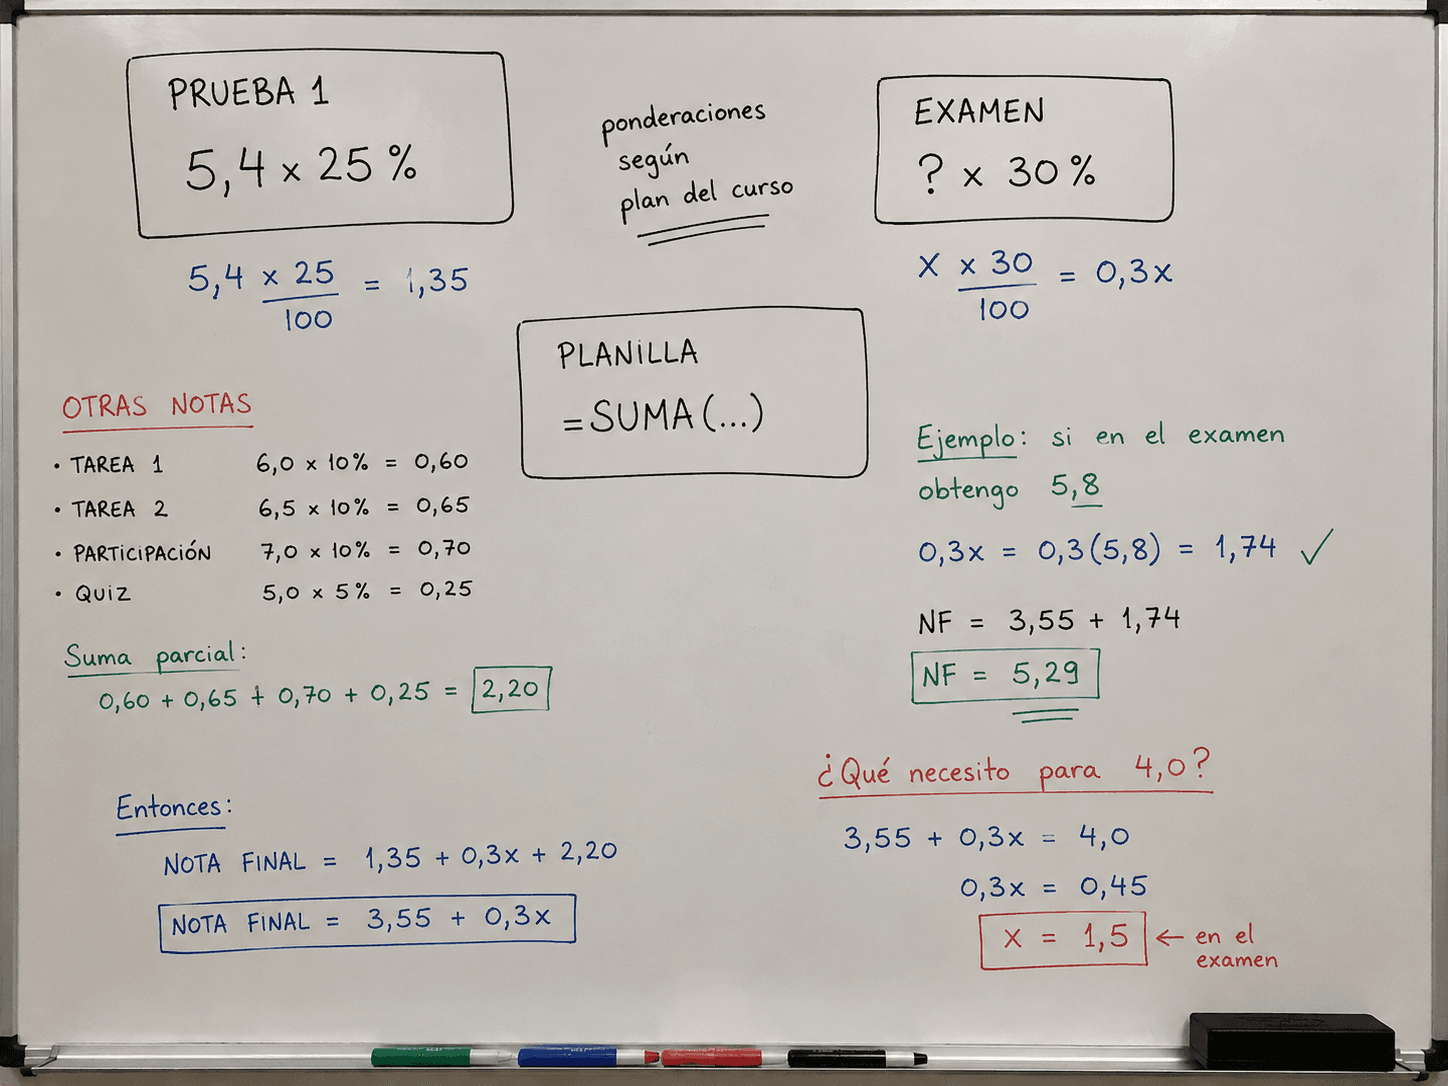 PRUEBA 1
5,4 x 25 %
ponderaciones
según
plan del curso
EXAMEN
? x 30 %
5,4 x 25 = 1,35
100
x x 30 = 0,3x
100
PLANILLA
=SUMA(...)
OTRAS NOTAS
• TAREA 1 6,0 x 10% = 0,60
• TAREA 2 6,5 x 10% = 0,65
• PARTICIPACIÓN 7,0 x 10% = 0,70
• QUIZ 5,0 x 5% = 0,25
Suma parcial:
0,60 + 0,65 + 0,70 + 0,25 = 2,20
Entonces:
NOTA FINAL = 1,35 + 0,3x + 2,20
NOTA FINAL = 3,55 + 0,3x
Ejemplo: si en el examen
obtengo 5,8
0,3x = 0,3(5,8) = 1,74 ✓
NF = 3,55 + 1,74
NF = 5,29
¿Qué necesito para 4,0?
3,55 + 0,3x = 4,0
0,3x = 0,45
x = 1,5 ← en el
examen